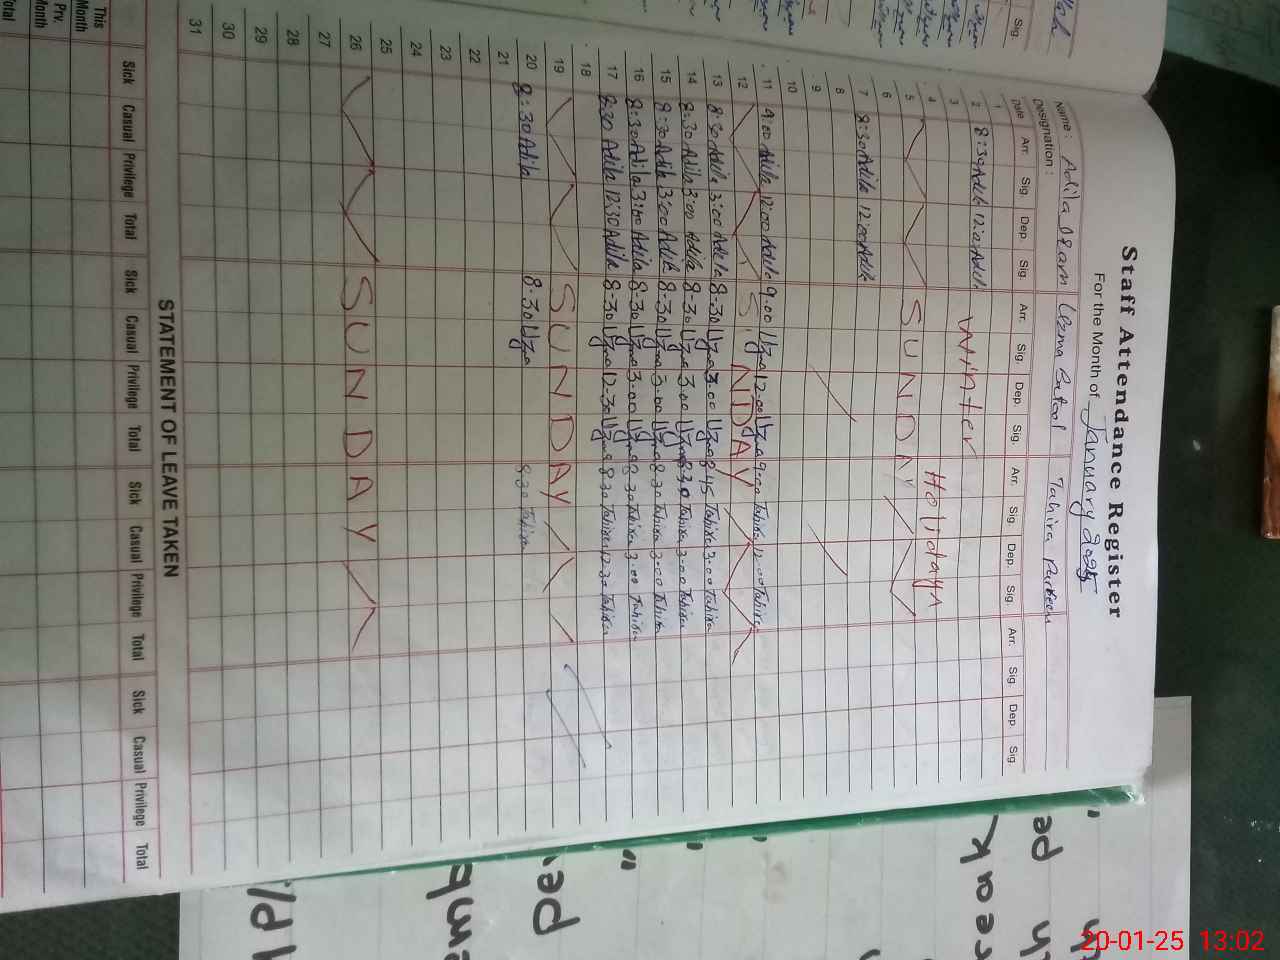 Staff Attendance Register
For the Month of January 2025
Name: Adila Islam Uzma Batool Tahira Parveen
Designation:
Date Arr. Sig. Dep. Sig. Arr. Sig. Dep. Sig. Arr. Sig. Dep. Sig. Arr. Sig. Dep. Sig.
1
2 8:30 Adila 12:00 Adila
3 Winter
4 Holidays
5 SUNDAY
6
7 8:30 Adila 12:00 Adila
8
9
10
11 9:00 Adila 12:00 Adila 9.00 Uzma 12.00 Uzma 9:00 Tahira 12:00 Tahira
12 SUNDAY
13 8:30 Adila 3:00 Adila 8-30 Uzma 3.00 Uzma 8:45 Tahira 3:00 Tahira
14 8:30 Adila 3:00 Adila 8-30 Uzma 3.00 Uzma 8:30 Tahira 3:00 Tahira
15 8:30 Adila 3:00 Adila 8-30 Uzma 3.00 Uzma 8:30 Tahira 3:00 Tahira
16 8:30 Adila 3:00 Adila 8-30 Uzma 3.00 Uzma 8:30 Tahira 3:00 Tahira
17 8:30 Adila 12:30 Adila 8-30 Uzma 12-30 Uzma 8:30 Tahira 12:30 Tahira
18
19 SUNDAY
20 8:30 Adila 8:30 Uzma 8:30 Tahira
21
22
23
24
25
26 SUNDAY
27
28
29
30
31
STATEMENT OF LEAVE TAKEN
Sick Casual Privilege Total Sick Casual Privilege Total Sick Casual Privilege Total Sick Casual Privilege Total
This Month
Prv. Month
Total
Sig.
20-01-25 13:02